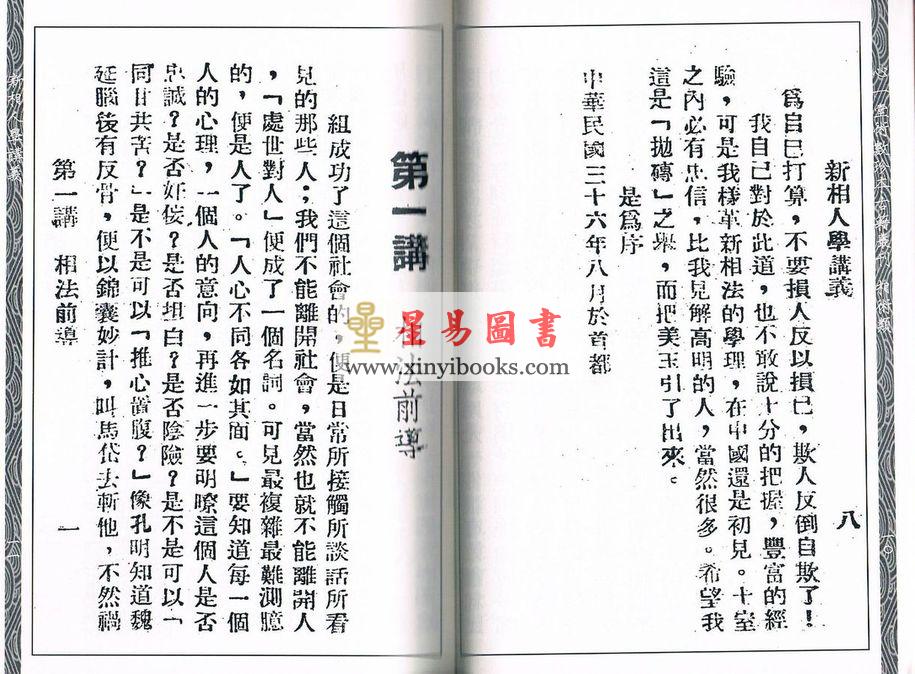 新相人學講義
八
爲自己打算，不要損人反以損己，欺人反倒自欺了！
我自己對於此道，也不敢說十分的把握，豐富的經
驗，可是我樣革新相法的學理，在中國還是初見。十室
之內必有忠信，比我見解高明的人，當然很多。希望我
這是「拋磚」之舉，而把美玉引了出來。
是爲序
中華民國三十六年八月於首都
第一講
相法前導
組成功了這個社會的，便是日常所接觸所談話所看
見的那些人；我們不能離開社會，當然也就不能離開人
，「處世對人」便成了一個名詞。可見最複雜最難測臆
的，便是人了。「人心不同各如其面。」要知道每一個
人的心理，一個人的意向，再進一步要明瞭這個人是否
忠誠？是否奸佞？是否坦白？是否陰險？是不是可以「
同甘共苦？」是不是可以「推心置腹？」像孔明知道魏
延腦後有反骨，便以錦囊妙計，叫馬岱去斬他，不然禍
第一講 相法前導
一
星易圖書
www.xinyibooks.com